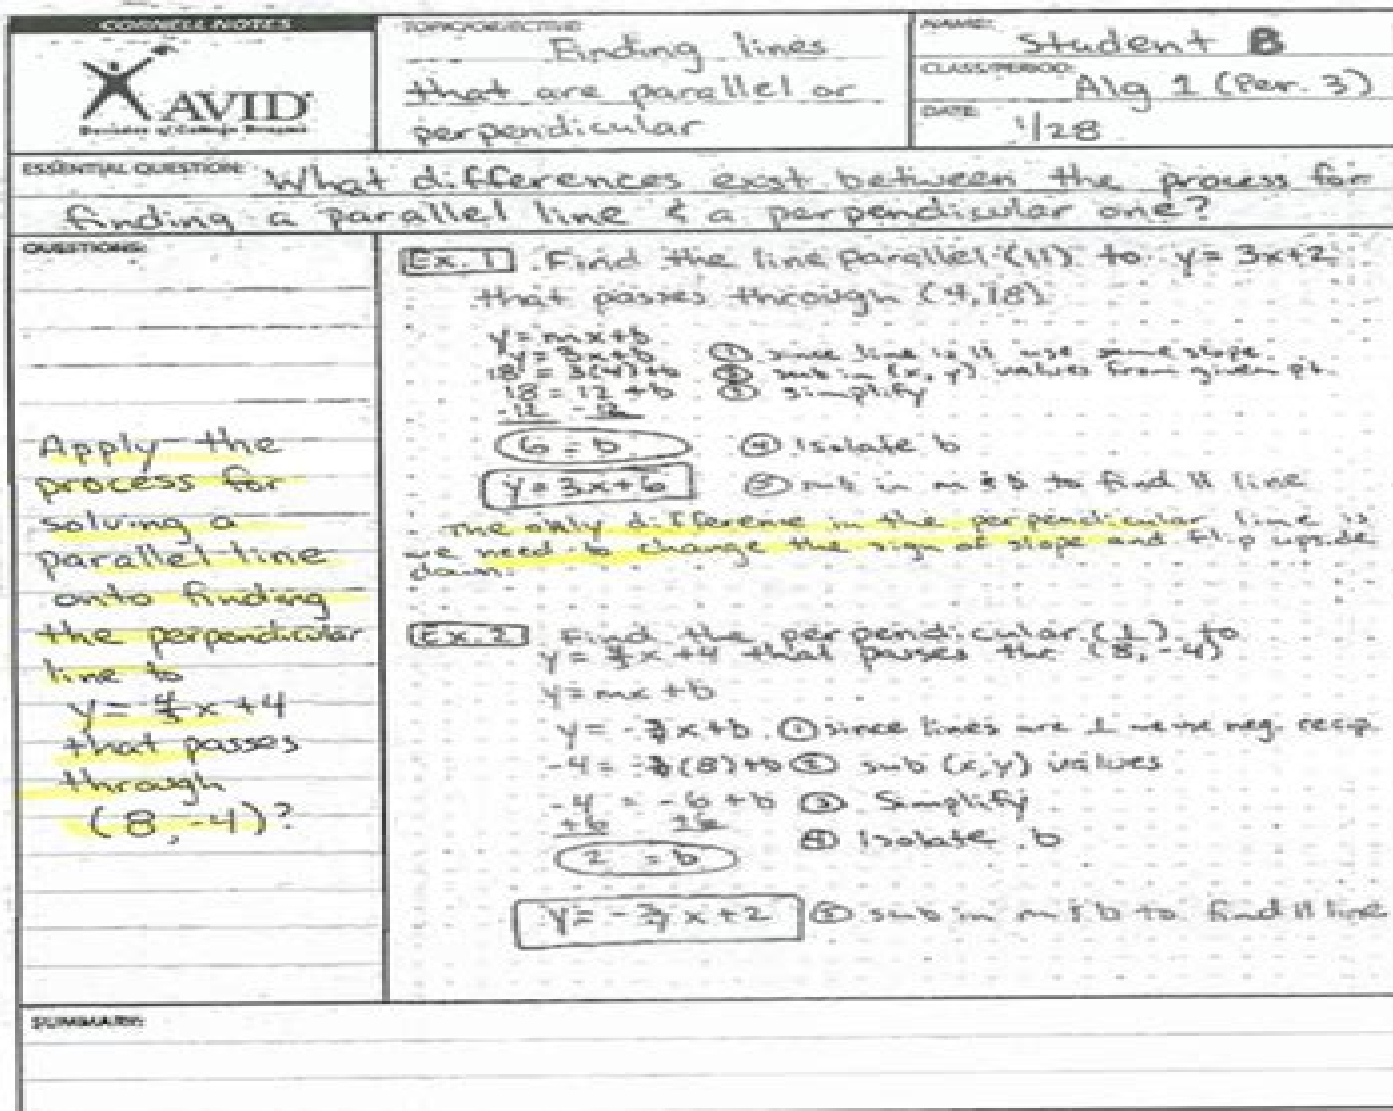 CORNELL NOTES
AVID
TOPIC/OBJECTIVE:
Finding lines
that are parallel or
perpendicular
NAME: Student B
CLASS/PERIOD: Alg 1 (Per. 3)
DATE: 1/28
ESSENTIAL QUESTION: What differences exist between the process for
finding a parallel line & a perpendicular one?
QUESTIONS:
Apply the
process for
solving a
parallel line
onto finding
the perpendicular
line to
through
(8, -4)?
y = x+4
that passes
Ex. 1 Find the line parallel (11) to y = 3x+2
that passes through (4,18)
y = mx+b
y = 3x+b ① since line is 11 use same slope
18 = 3(4)+b ② sub in (x, y) values from given pt.
18 = 12 +b ③ simplify
-12 -12
6 = b ④ isolate b
y = 3x+6 ⑤ sub in m & b to find 11 line
The only difference in the perpendicular line is
we need to change the sign of slope and flip upside
down.
Ex. 2 Find the perpendicular (⊥) to
y = x +4 that passes thr (8, -4)
y = mx +b
y = - x+b ① since lines are ⊥ we use neg. recip.
-4 = - (8)+b ② sub (x,y) values
-4 = -6 +b ③ Simplify
+6 +6
2 = b ④ isolate b
y = - x +2 ⑤ sub in m & b to find 11 line
SUMMARY: